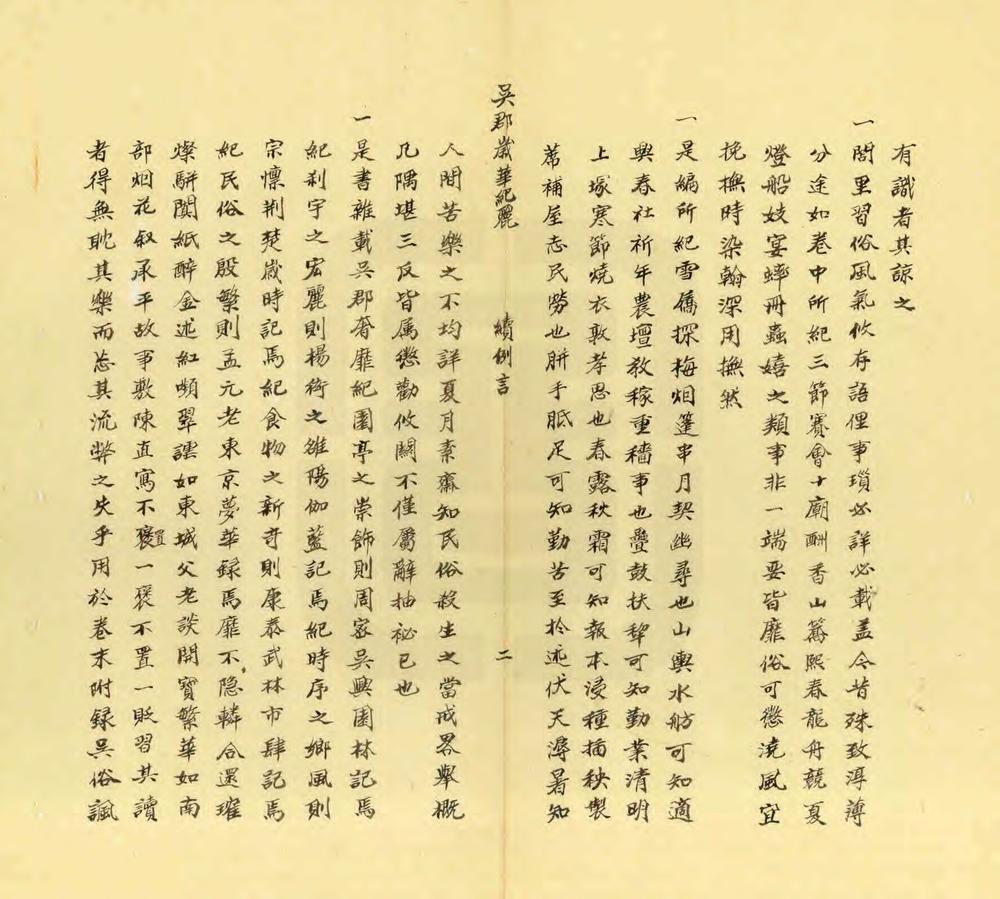 有識者其諒之
一閭里習俗風氣攸存語俚事瑣必詳必載蓋今昔殊致淳薄
分途如卷中所紀三節賽會十廟酬香山篝熙春龍舟競夏
燈船妓宴蟀冊蟲嬉之類事非一端要皆靡俗可懲澆風宜
挽撫時染翰深用撫然
一是編所紀雪僑探梅烟篷串月契幽尋也山輿水舫可知適
興春社祈年農壇教稼重穡事也疊鼓扶犂可知勤業清明
上塚寒節燒衣敦孝思也春露秋霜可知報本浸種插秧製
蓆補屋志民勞也胼手胝足可知勤苦至於迹伏天溽暑知
吳郡歲華紀麗 續例言 二
人間苦樂之不均詳夏月素齋知民俗殺生之當戒畧舉概
凡隅堪三反皆属懲勸攸關不僅屬辭抽祕已也
一是書雜載吳郡奢靡紀園亭之崇飾則周密吳興園林記焉
紀刹宇之宏麗則楊衒之雒陽伽藍記焉紀時序之鄉風則
宗懔荆楚歲時記焉紀食物之新奇則康泰武林市肆記焉
紀民俗之殷繁則孟元老東京夢華録焉靡不隐轔合還璀
燦駢闐紙醉金迷紅嚬翠讔如東城父老談開寶繁華如南
部烟花叙承平故事敷陳直寫不褒置一褒不置一貶習其讀
者得無耽其樂而忘其流弊之失乎用於卷末附録吳俗諷